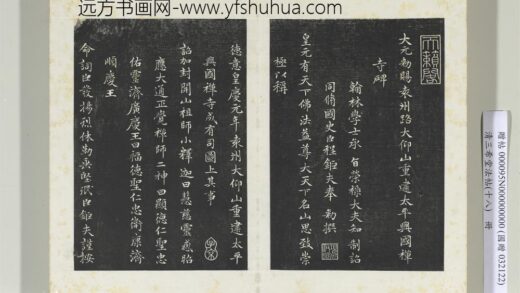 远方书画网-www.yfshuhua.com
天籟閣
大元勑賜袁州路大仰山重建太平興國禪
寺碑
翰林學士承旨榮祿大夫知制誥
同脩國史臣程鉅夫奉 勑撰
皇元有天下佛法益尊大天下名山思致崇
極以稱
德意皇慶元年袁州大仰山重建太平
興國禪寺成有司圖上其事
詔加封開山祖師小釋迦曰慧慈靈感昭
應大通正覺禪師二神曰顯德仁聖忠
佑靈濟廣慶王曰福德聖仁忠衛康濟
順慶王
命詞臣發揚休勒堅珉臣鉅夫謹按
贈帖 000095N000000000 (國贈 032122)
清三希堂法帖(十八) 冊